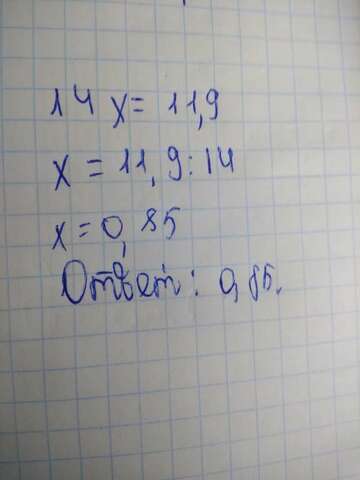 14 x = 11,9
x = 11,9 : 14
x = 0,85
Ответ: 0,85.